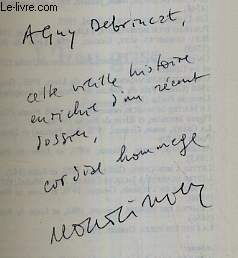 Le-livre.com
A Guy Debrinczt,
cette vieille histoire
enrichie d'un récent
dossier,
cordial hommage